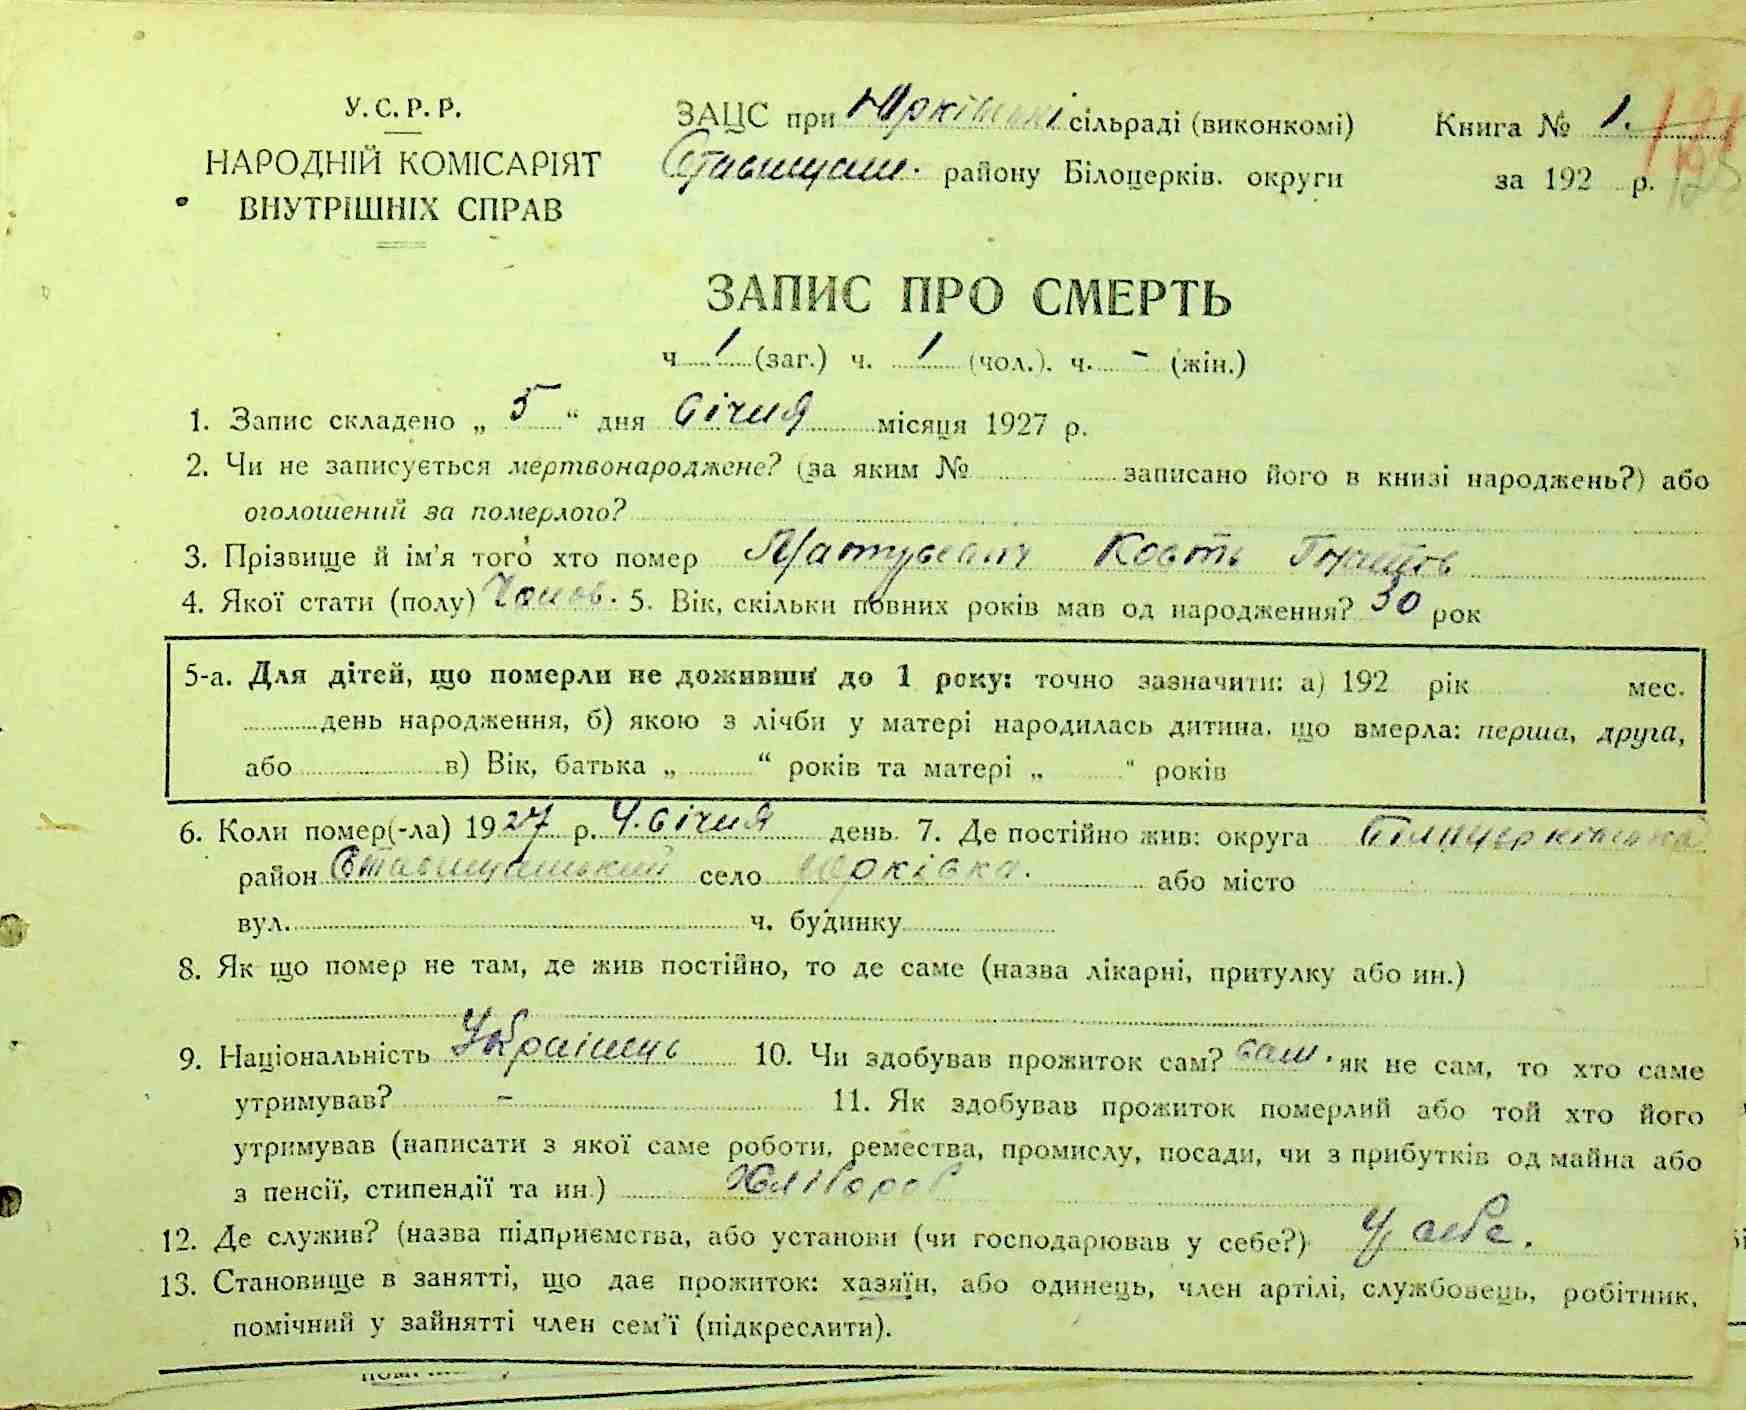 У.С.Р.Р.
НАРОДНІЙ КОМІСАРІЯТ
ВНУТРІШНІХ СПРАВ
ЗАЦС при Юрківські сільраді (виконкомі)
Ставищан. району Білоцерків. округи
Книга № 1.
за 192 р.
ЗАПИС ПРО СМЕРТЬ
ч 1 (заг.) ч. 1 (чол.). ч. - (жін.)
1. Запис складено „ 5 “ дня Січня місяця 1927 р.
2. Чи не записується мертвонароджене? (за яким № записано його в книзі народжень?) або
оголошений за померлого?
3. Прізвище й ім'я того хто помер Кость
4. Якої стати (полу) Чолов. 5. Вік, скільки повних років мав од народження? 30 рок
5-а. Для дітей, що померли не доживши до 1 року: точно зазначити: а) 192 рік мес.
день народження, б) якою з лічби у матері народилась дитина, що вмерла: перша, друга,
або в) Вік, батька „ “ років та матері „ “ років
6. Коли помер(-ла) 1927 р. 4 Січня день. 7. Де постійно жив: округа Білоцерківська
район Ставищанський село Юрківка. або місто
вул. ч. будинку
8. Як що помер не там, де жив постійно, то де саме (назва лікарні, притулку або ин.)
9. Національність Українець 10. Чи здобував прожиток сам? сам. як не сам, то хто саме
утримував? - 11. Як здобував прожиток померлий або той хто його
утримував (написати з якої саме роботи, ремества, промислу, посади, чи з прибутків од майна або
з пенсії, стипендії та ин.) Хлібороб
12. Де служив? (назва підприємства, або установи (чи господарював у себе?) У себе.
13. Становище в занятті, що дає прожиток: хазяїн, або одинець, член артілі, службовець, робітник,
помічний у зайнятті член сем'ї (підкреслити).